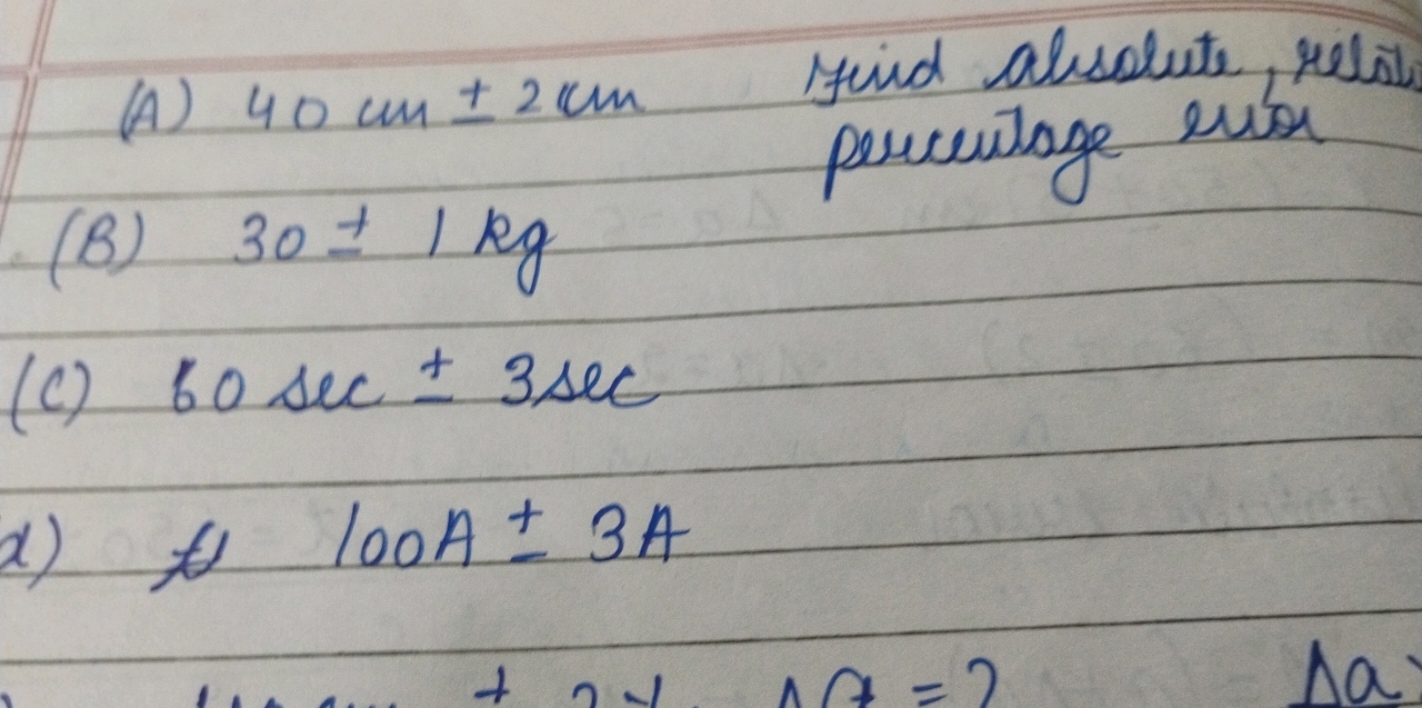 (A) 40 cm ± 2 cm Find absolute,
percentage error
(B) 30 ± 1 kg
(C) 60 sec ± 3 sec
d) 100A ± 3A
± = ? Δa